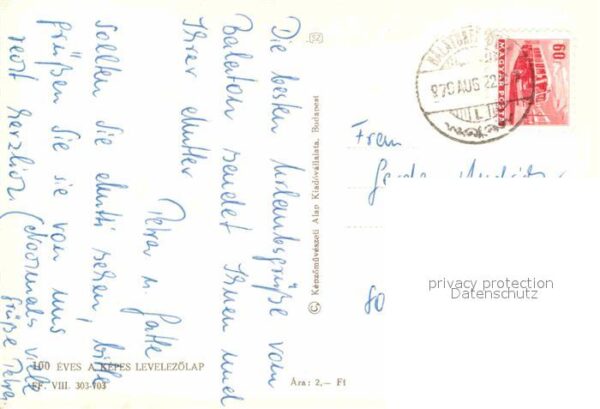 Die besten Urlaubsgrüße vom
Balaton sendet Ihnen und
Ihrer Mutter
Petra u. Gatte
Sollten Sie Mutti sehen, bitte
grüßen Sie sie von uns
recht herzlich (Nochmals viele
Grüße Petra
100 ÉVES A KÉPES LEVELEZŐLAP
FF. VIII. 303-103
Ára: 2,— Ft
© Képzőművészeti Alap Kiadóvállalata, Budapest
52
60
MAGYAR POSTA
AUG 22
Frau
80
privacy protection
Datenschutz